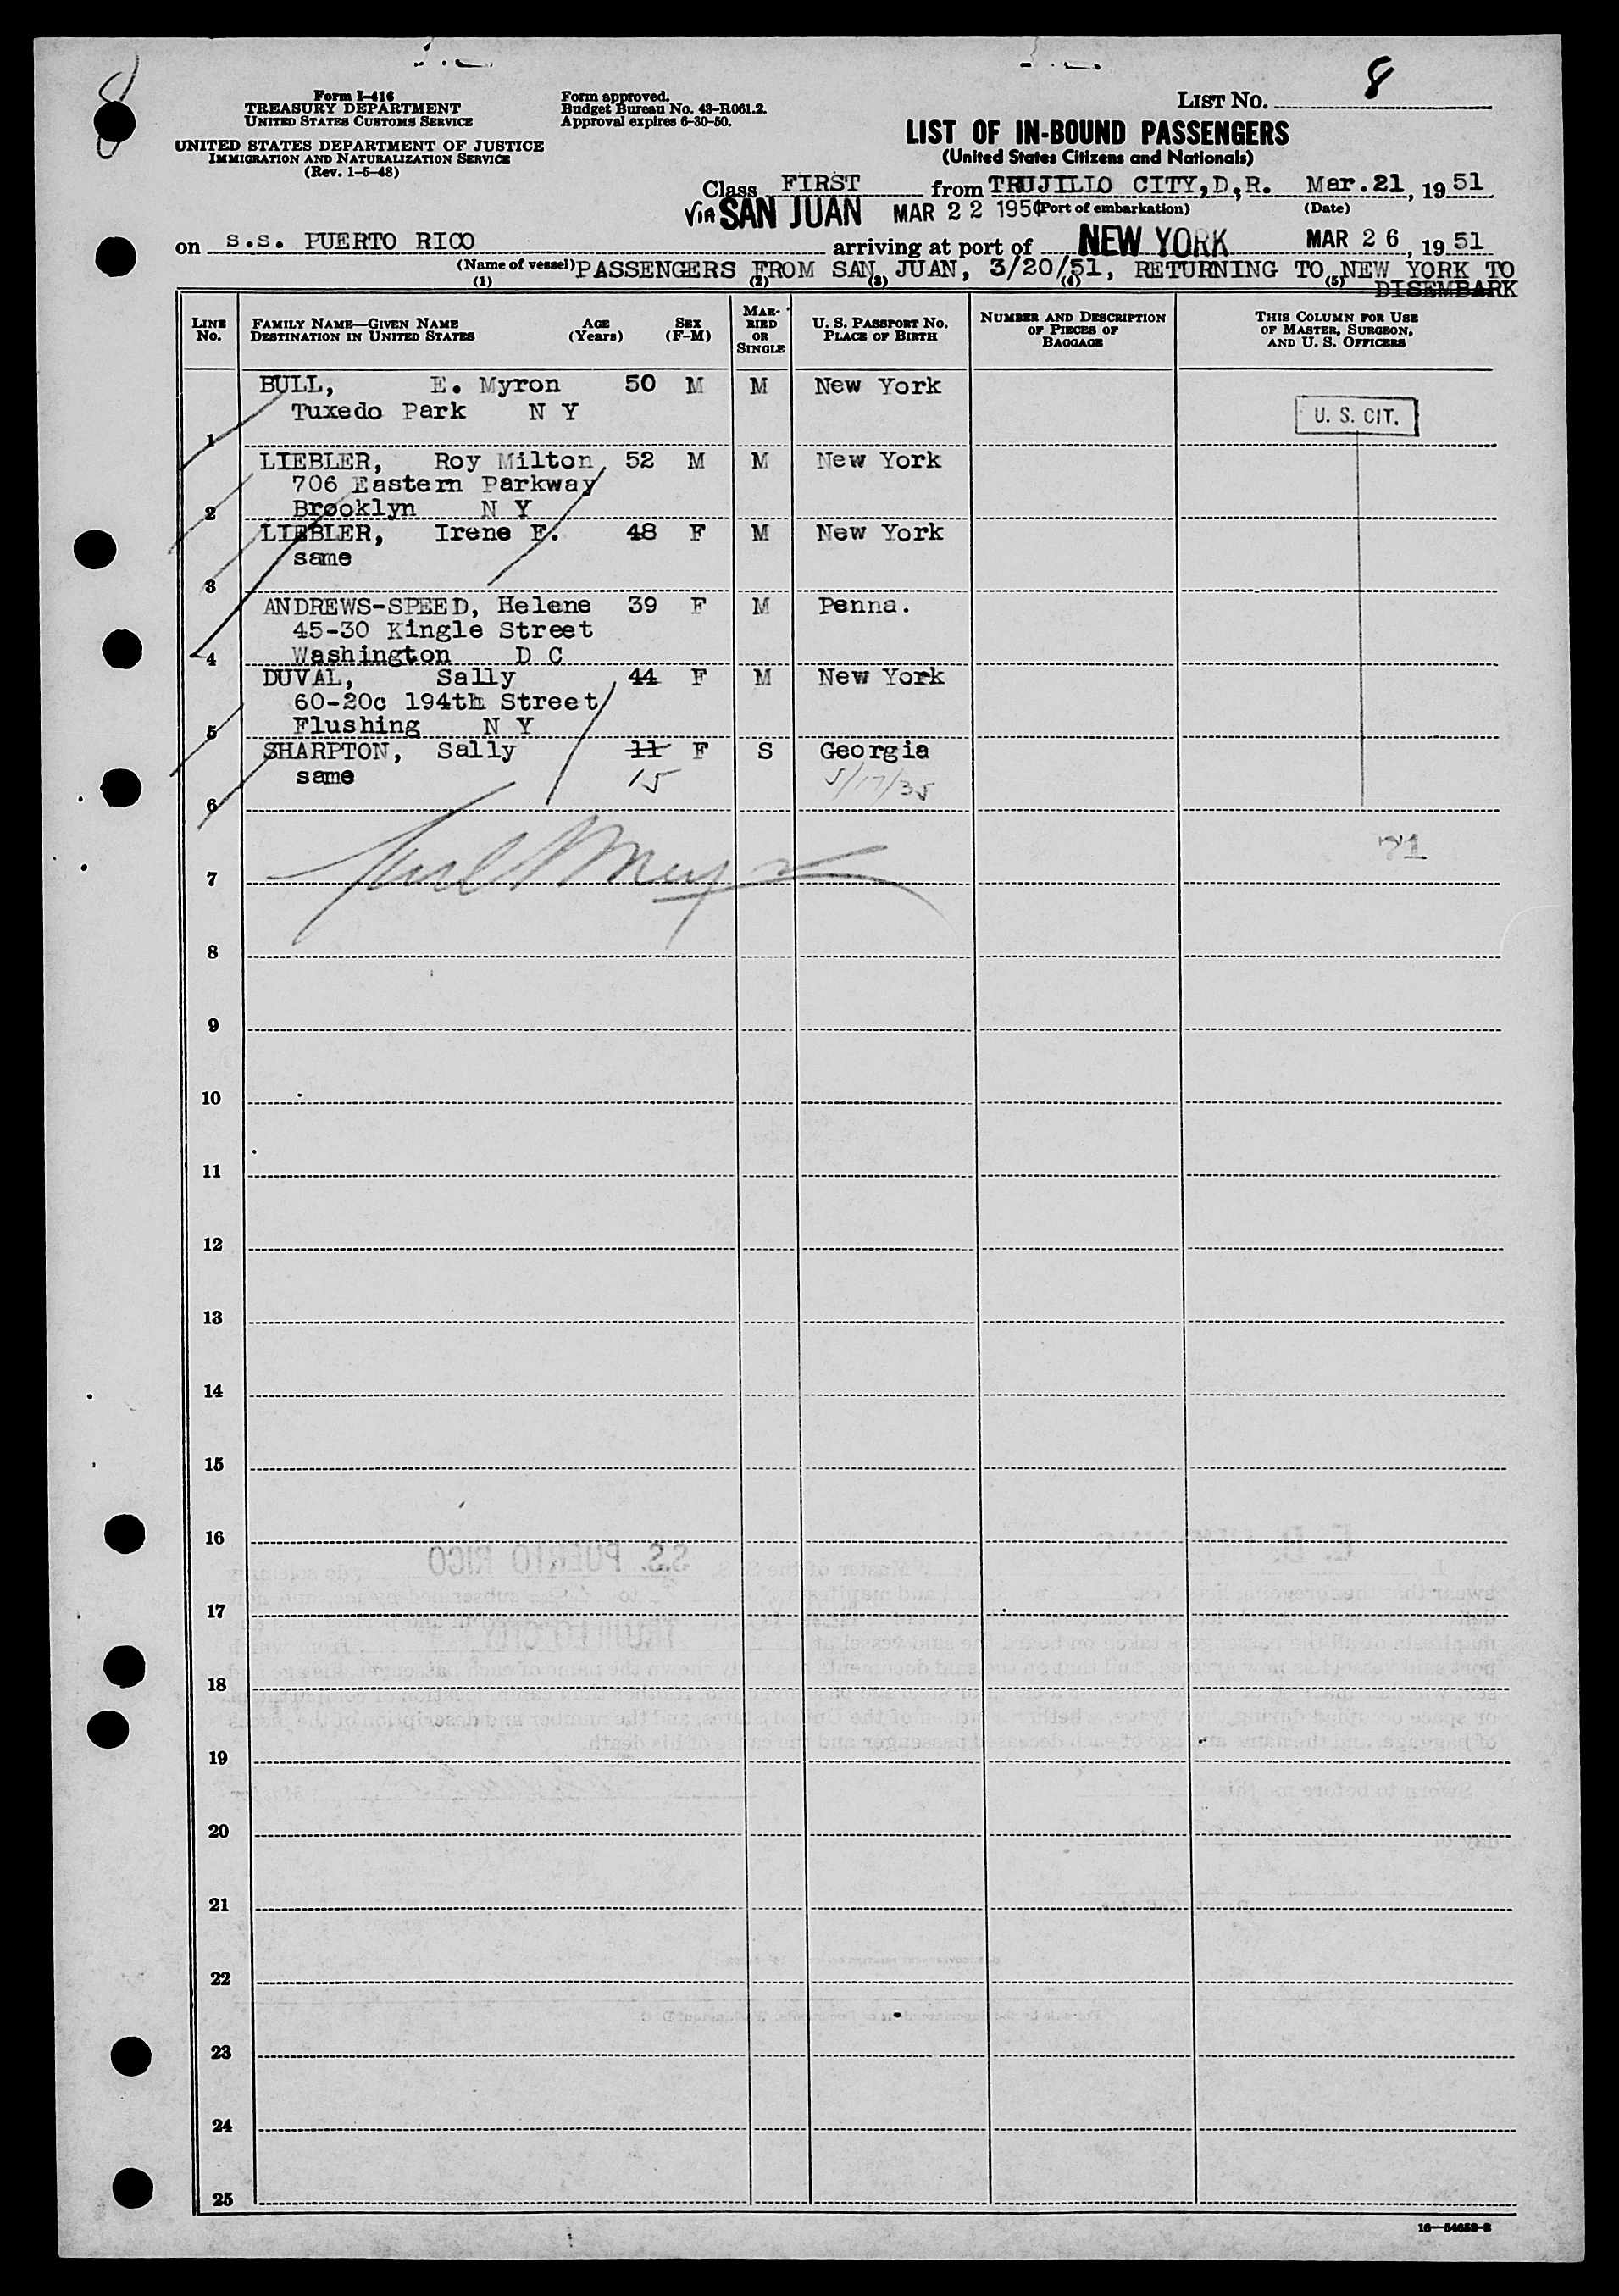 8
8
Form I-416
TREASURY DEPARTMENT
UNITED STATES CUSTOMS SERVICE
UNITED STATES DEPARTMENT OF JUSTICE
IMMIGRATION AND NATURALIZATION SERVICE
(Rev. 1-5-48)
Form approved.
Budget Bureau No. 43-R061.2.
Approval expires 6-30-50.
LIST NO.
LIST OF IN-BOUND PASSENGERS
(United States Citizens and Nationals)
Class FIRST from TRUJILLO CITY, D.R. Mar. 21, 1951
VIA SAN JUAN MAR 22 195 (Port of embarkation) (Date)
on s.s. PUERTO RICO arriving at port of NEW YORK MAR 26, 1951
(Name of vessel) PASSENGERS FROM SAN JUAN, 3/20/51, RETURNING TO NEW YORK TO
DISEMBARK
(1) (2) (3) (4) (5)
LINE NO. FAMILY NAME—GIVEN NAME DESTINATION IN UNITED STATES AGE (Years) SEX (F-M) MARRIED OR SINGLE U. S. PASSPORT NO. PLACE OF BIRTH NUMBER AND DESCRIPTION OF PIECES OF BAGGAGE THIS COLUMN FOR USE OF MASTER, SURGEON, AND U. S. OFFICERS
BULL, E. Myron 50 M M New York
Tuxedo Park N Y U. S. CIT.
1
LIEBLER, Roy Milton 52 M M New York
706 Eastern Parkway
2 Brooklyn N Y
LIEBLER, Irene F. 48 F M New York
same
3
ANDREWS-SPEED, Helene 39 F M Penna.
45-30 Kingle Street
4 Washington D C
DUVAL, Sally 44 F M New York
60-20c 194th Street
5 Flushing N Y
SHARPTON, Sally 11 F S Georgia
same 15 5/17/35
6
71
7
8
9
10
11
12
13
14
15
16
S.S. PUERTO RICO
17
TRUJILLO CITY
18
19
20
21
22
23
24
25
16—54652-2